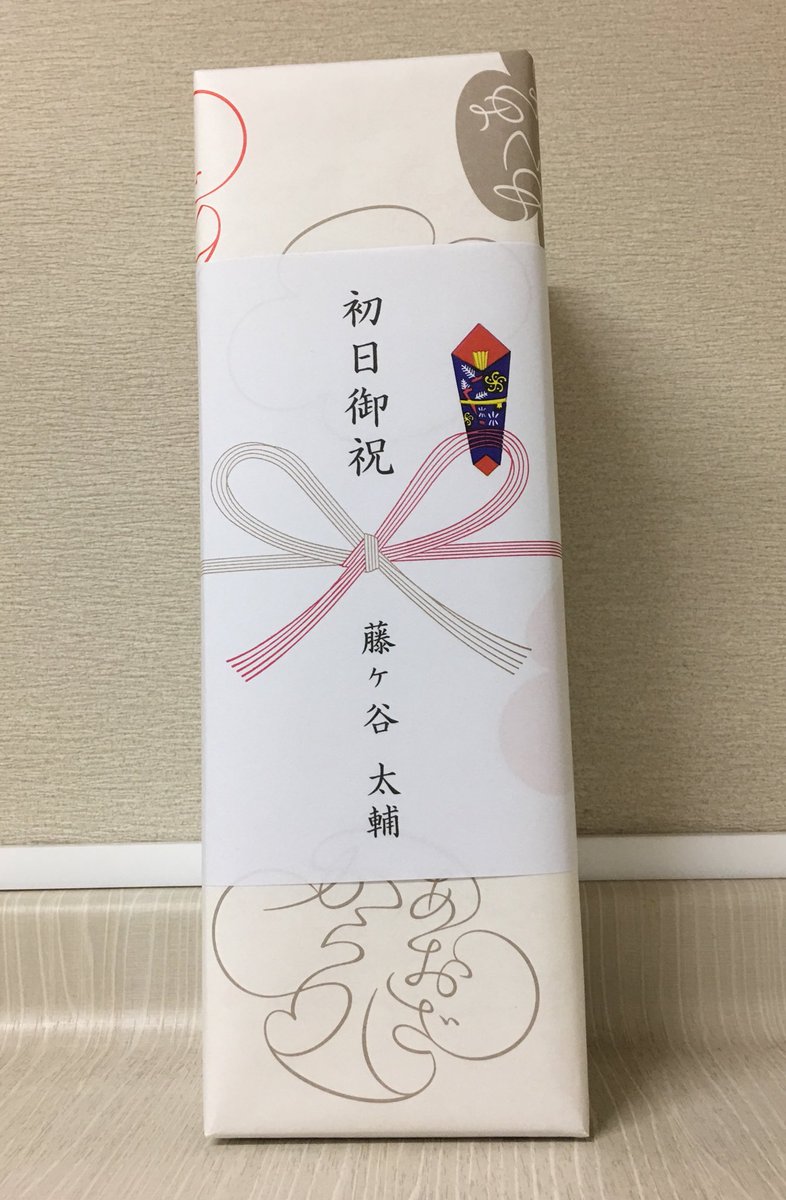 初日御祝
藤ヶ谷 太輔
あおざ